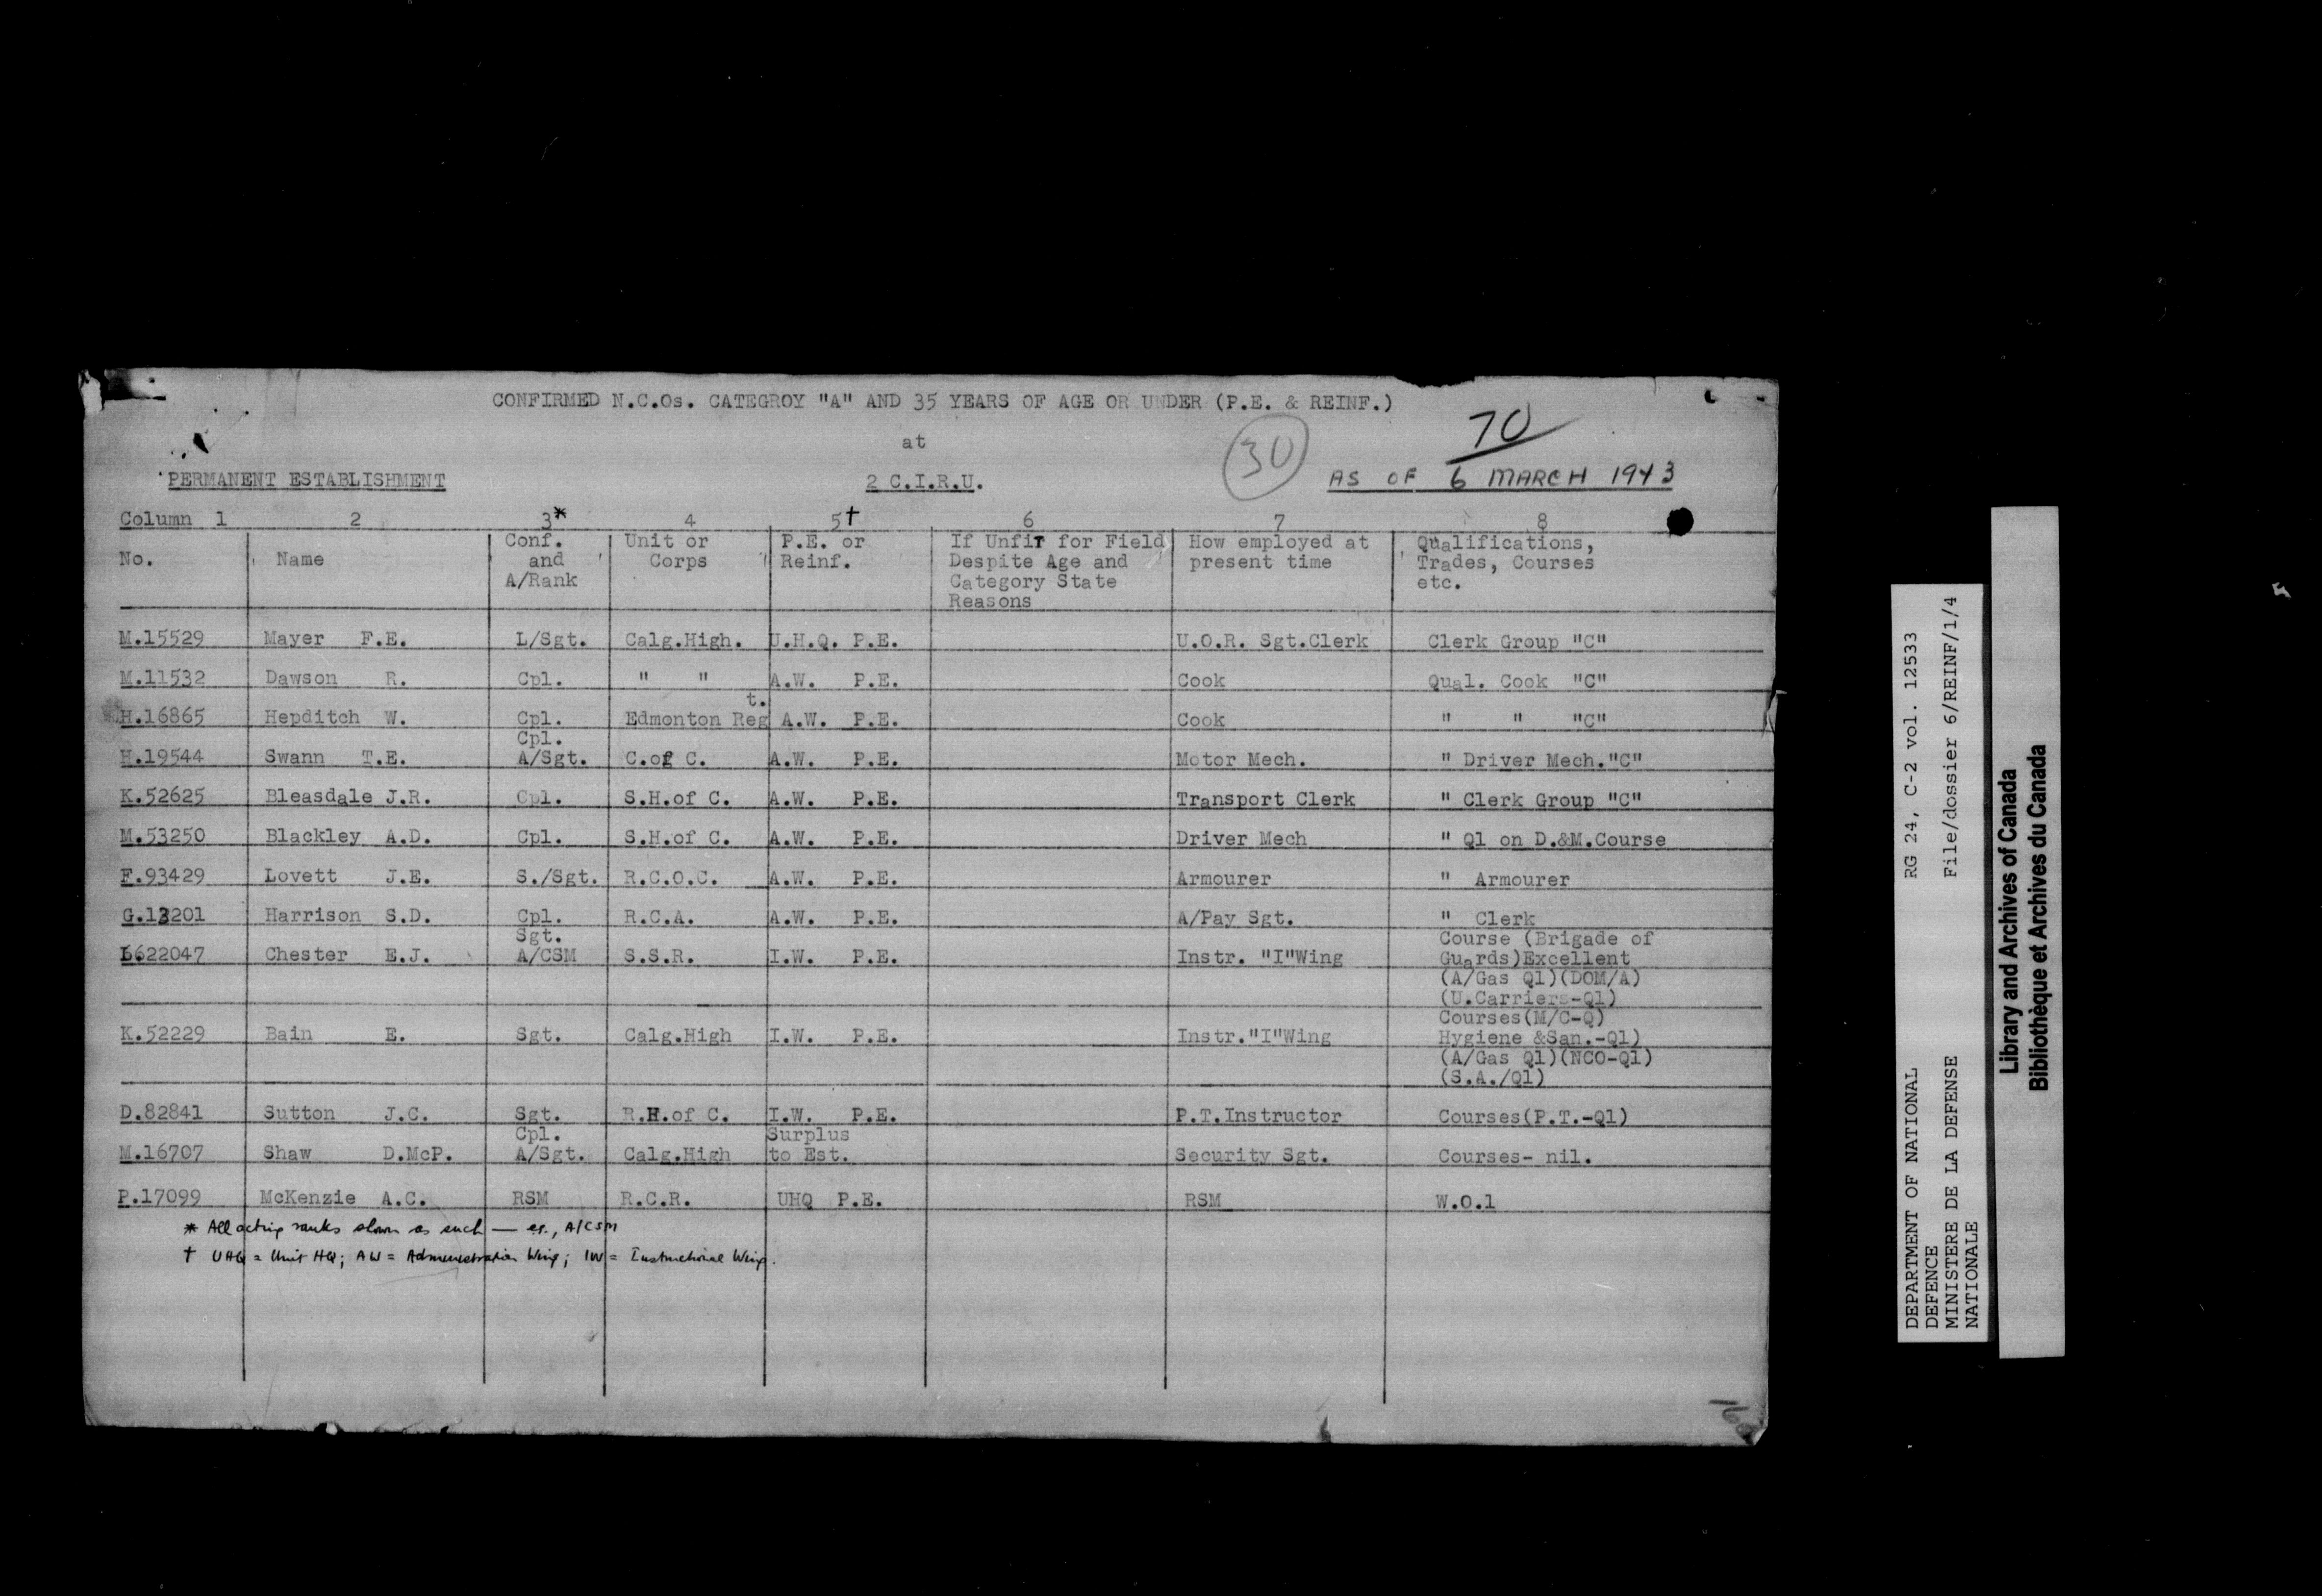 CONFIRMED N.C.Os. CATEGROY "A" AND 35 YEARS OF AGE OR UNDER (P.E. & REINF.)
at
30
70
PERMANENT ESTABLISHMENT 2 C.I.R.U. AS OF 6 MARCH 1943
Column 1 2 3* 4 5† 6 7 8
No. Name Conf. and A/Rank Unit or Corps P.E. or Reinf. If Unfit for Field Despite Age and Category State Reasons How employed at present time Qualifications, Trades, Courses etc.
M.15529 Mayer F.E. L/Sgt. Calg.High. U.H.Q. P.E. U.O.R. Sgt.Clerk Clerk Group "C"
M.11532 Dawson R. Cpl. " " A.W. P.E. Cook Qual. Cook "C"
H.16865 Hepditch W. Cpl. Edmonton Regt. A.W. P.E. Cook " " "C"
H.19544 Swann T.E. Cpl. A/Sgt. C.of C. A.W. P.E. Motor Mech. " Driver Mech."C"
K.52625 Bleasdale J.R. Cpl. S.H.of C. A.W. P.E. Transport Clerk " Clerk Group "C"
M.53250 Blackley A.D. Cpl. S.H.of C. A.W. P.E. Driver Mech " Q1 on D.&M.Course
F.93429 Lovett J.E. S./Sgt. R.C.O.C. A.W. P.E. Armourer " Armourer
Harrison S.D. Cpl. R.C.A. A.W. P.E. A/Pay Sgt. " Clerk
Chester E.J. Sgt. A/CSM S.S.R. I.W. P.E. Instr. "I"Wing Course (Brigade of
Guards)Excellent
(A/Gas Q1)(DOM/A)
(U.Carriers-Q1)
K.52229 Bain E. Sgt. Calg.High I.W. P.E. Instr."I"Wing Courses(M/C-Q)
Hygiene &San.-Q1)
(A/Gas Q1)(NCO-Q1)
(S.A./Q1)
D.82841 Sutton J.C. Sgt. R.H.of C. I.W. P.E. P.T.Instructor Courses(P.T.-Q1)
M.16707 Shaw D.McP. Cpl. A/Sgt. Calg.High Surplus to Est. Security Sgt. Courses- nil.
P.17099 McKenzie A.C. RSM R.C.R. UHQ P.E. RSM W.O.1
* All acting ranks shown as such — eg., A/CSM
† UHQ = Unit HQ; AW = Administration Wing; IW = Instructional Wing.
DEPARTMENT OF NATIONAL RG 24, C-2 vol. 12533
DEFENCE
MINISTERE DE LA DEFENSE File/dossier 6/REINF/1/4
NATIONALE
Library and Archives of Canada
Bibliothèque et Archives du Canada